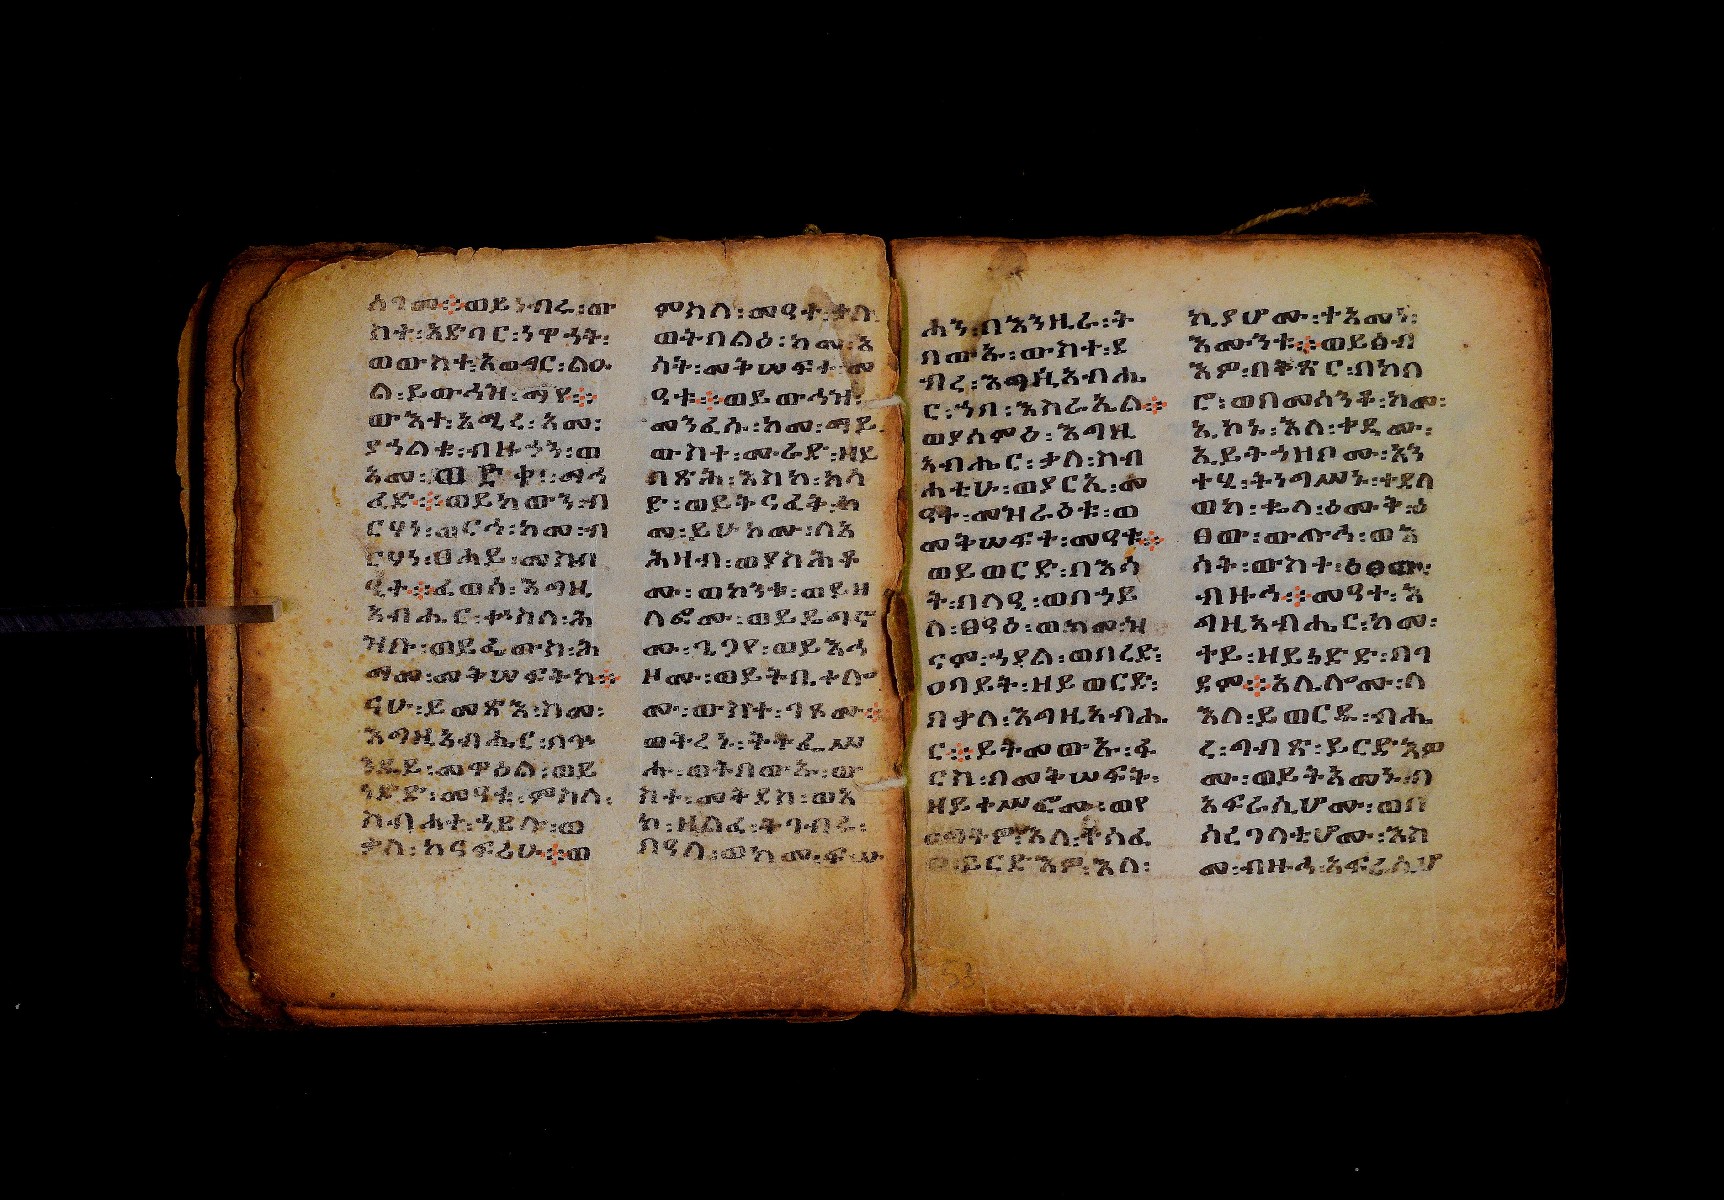 ሰላመ፨ወይነብሩ፡ው
ስተ፡አድባር፡ነዋኅት፡
ወውስተ፡አወግር፡ልዑ
ል፡ይውኅዝ፡ማየ፨
ውእተ፡አሚረ፡አመ፡
ያኀልቁ፡ብዙኃን፡ወ
አመ፡ወድቀ፡ማኅ
ፈድ፨ወይከውን፡ብ
ርሃነ፡ወርኅ፡ከመ፡ብ
ርሃነ፡ፀሐይ፡መስብ
ዒተ፨ፈወሰ፡እግዚ
አብሔር፡ቍስለ፡ሕ
ዝቡ፡ወይፌውስ፡ሕ
ማመ፡መቅሠፍትከ፨
ናሁ፡ይመጽእ፡ስመ፡
እግዚአብሔር፡በጕ
ንዱይ፡መዋዕል፡ወይ
ነድድ፡መዓቱ፡ምስለ፡
ስብሐተ፡ኀይሉ፡ወ
ቃለ፡ከናፍሪሁ፨ወ
ምስለ፡መዓተ፡ቃሉ፡
ወትበልዕ፡ከመ፡እ
ሳት፡መቅሠፍተ፡መ
ዓቱ፨ወይውኅዝ፡
መንፈሱ፡ከመ፡ማይ፡
ውስተ፡ሙራድ፡ዘይ
በጽሕ፡እስከ፡ክሳ
ድ፡ወይትናፈት፡ከ
መ፡ይሁከሙ፡ለአ
ሕዛብ፡ወያስሕቶ
ሙ፡ወከንቱ፡ወይዘ
ሙ፡ወይትቤተሎ
ሙ፡ውስተ፡ገጾሙ፨
ወትረ፡ትትፌሥ
ሑ፡ወትበውኡ፡ው
ስተ፡መቅደስ፡ወአ
ከ፡ዘልፈ፡ትገብሩ፡
በዓለ፡ወከመ፡ፍሡ
ሐን፡በእንዚራ፡ት
በውኡ፡ውስተ፡ደ
ብረ፡እግዚአብሔ
ር፡ኀበ፡እስራኤል፨
ወያሰምዕ፡እግዚ
አብሔር፡ቃለ፡ስብ
ሐቲሁ፡ወያርኢ፡መ
ዓት፡መዝራዕቱ፡ወ
መቅሠፍተ፡መዓቱ፨
ወይወርድ፡በእሳ
ት፡በላዒ፡ወበኀይ
ል፡ፀዓዕ፡ወከመ፡ዝ
ናም፡ኀያል፡ወበረድ፡
ዐባይት፡ዘይወርድ፡
በቃለ፡እግዚአብሔ
ር፨ይትመውኡ፡ፋ
ርስ፡በመቅሠፍት፡
ዘይቀሥፎሙ፡ወየ
ወይርድእዎ፡እለ፡
ኪያሆሙ፡ተአመነ፡
እሙንቱ፨ወይፅብ
እዎ፡በቅጽር፡በከበ
ሮ፡ወበመሰንቆ፡ከመ፡
ኢኮኑ፡እለ፡ቀዲሙ፡
ኢይትኀዘቦሙ፡እን
ተሂ፡ትንግሥኑ፡ተደለ
ወከ፡ቈላ፡ዕሙቅ፡ዕ
ፀው፡ውጡሕ፡ወእ
ሳት፡ውስተ፡ዕፀው፡
ብዙኅ፨መዓተ፡እ
ግዚአብሔር፡ከመ፡
ተይ፡ዘይነድድ፡በገ
ደም፨አሌሎሙ፡ለ
እለ፡ይወርዱ፡ብሔ
ረ፡ግብጽ፡ይርድእዎ
ሙ፡ወይትአመኑ፡በ
አፍራሲሆሙ፡ወበ
ሰረገላቲሆሙ፡እስ
መ፡ብዙኅ፡አፍራሲሆ